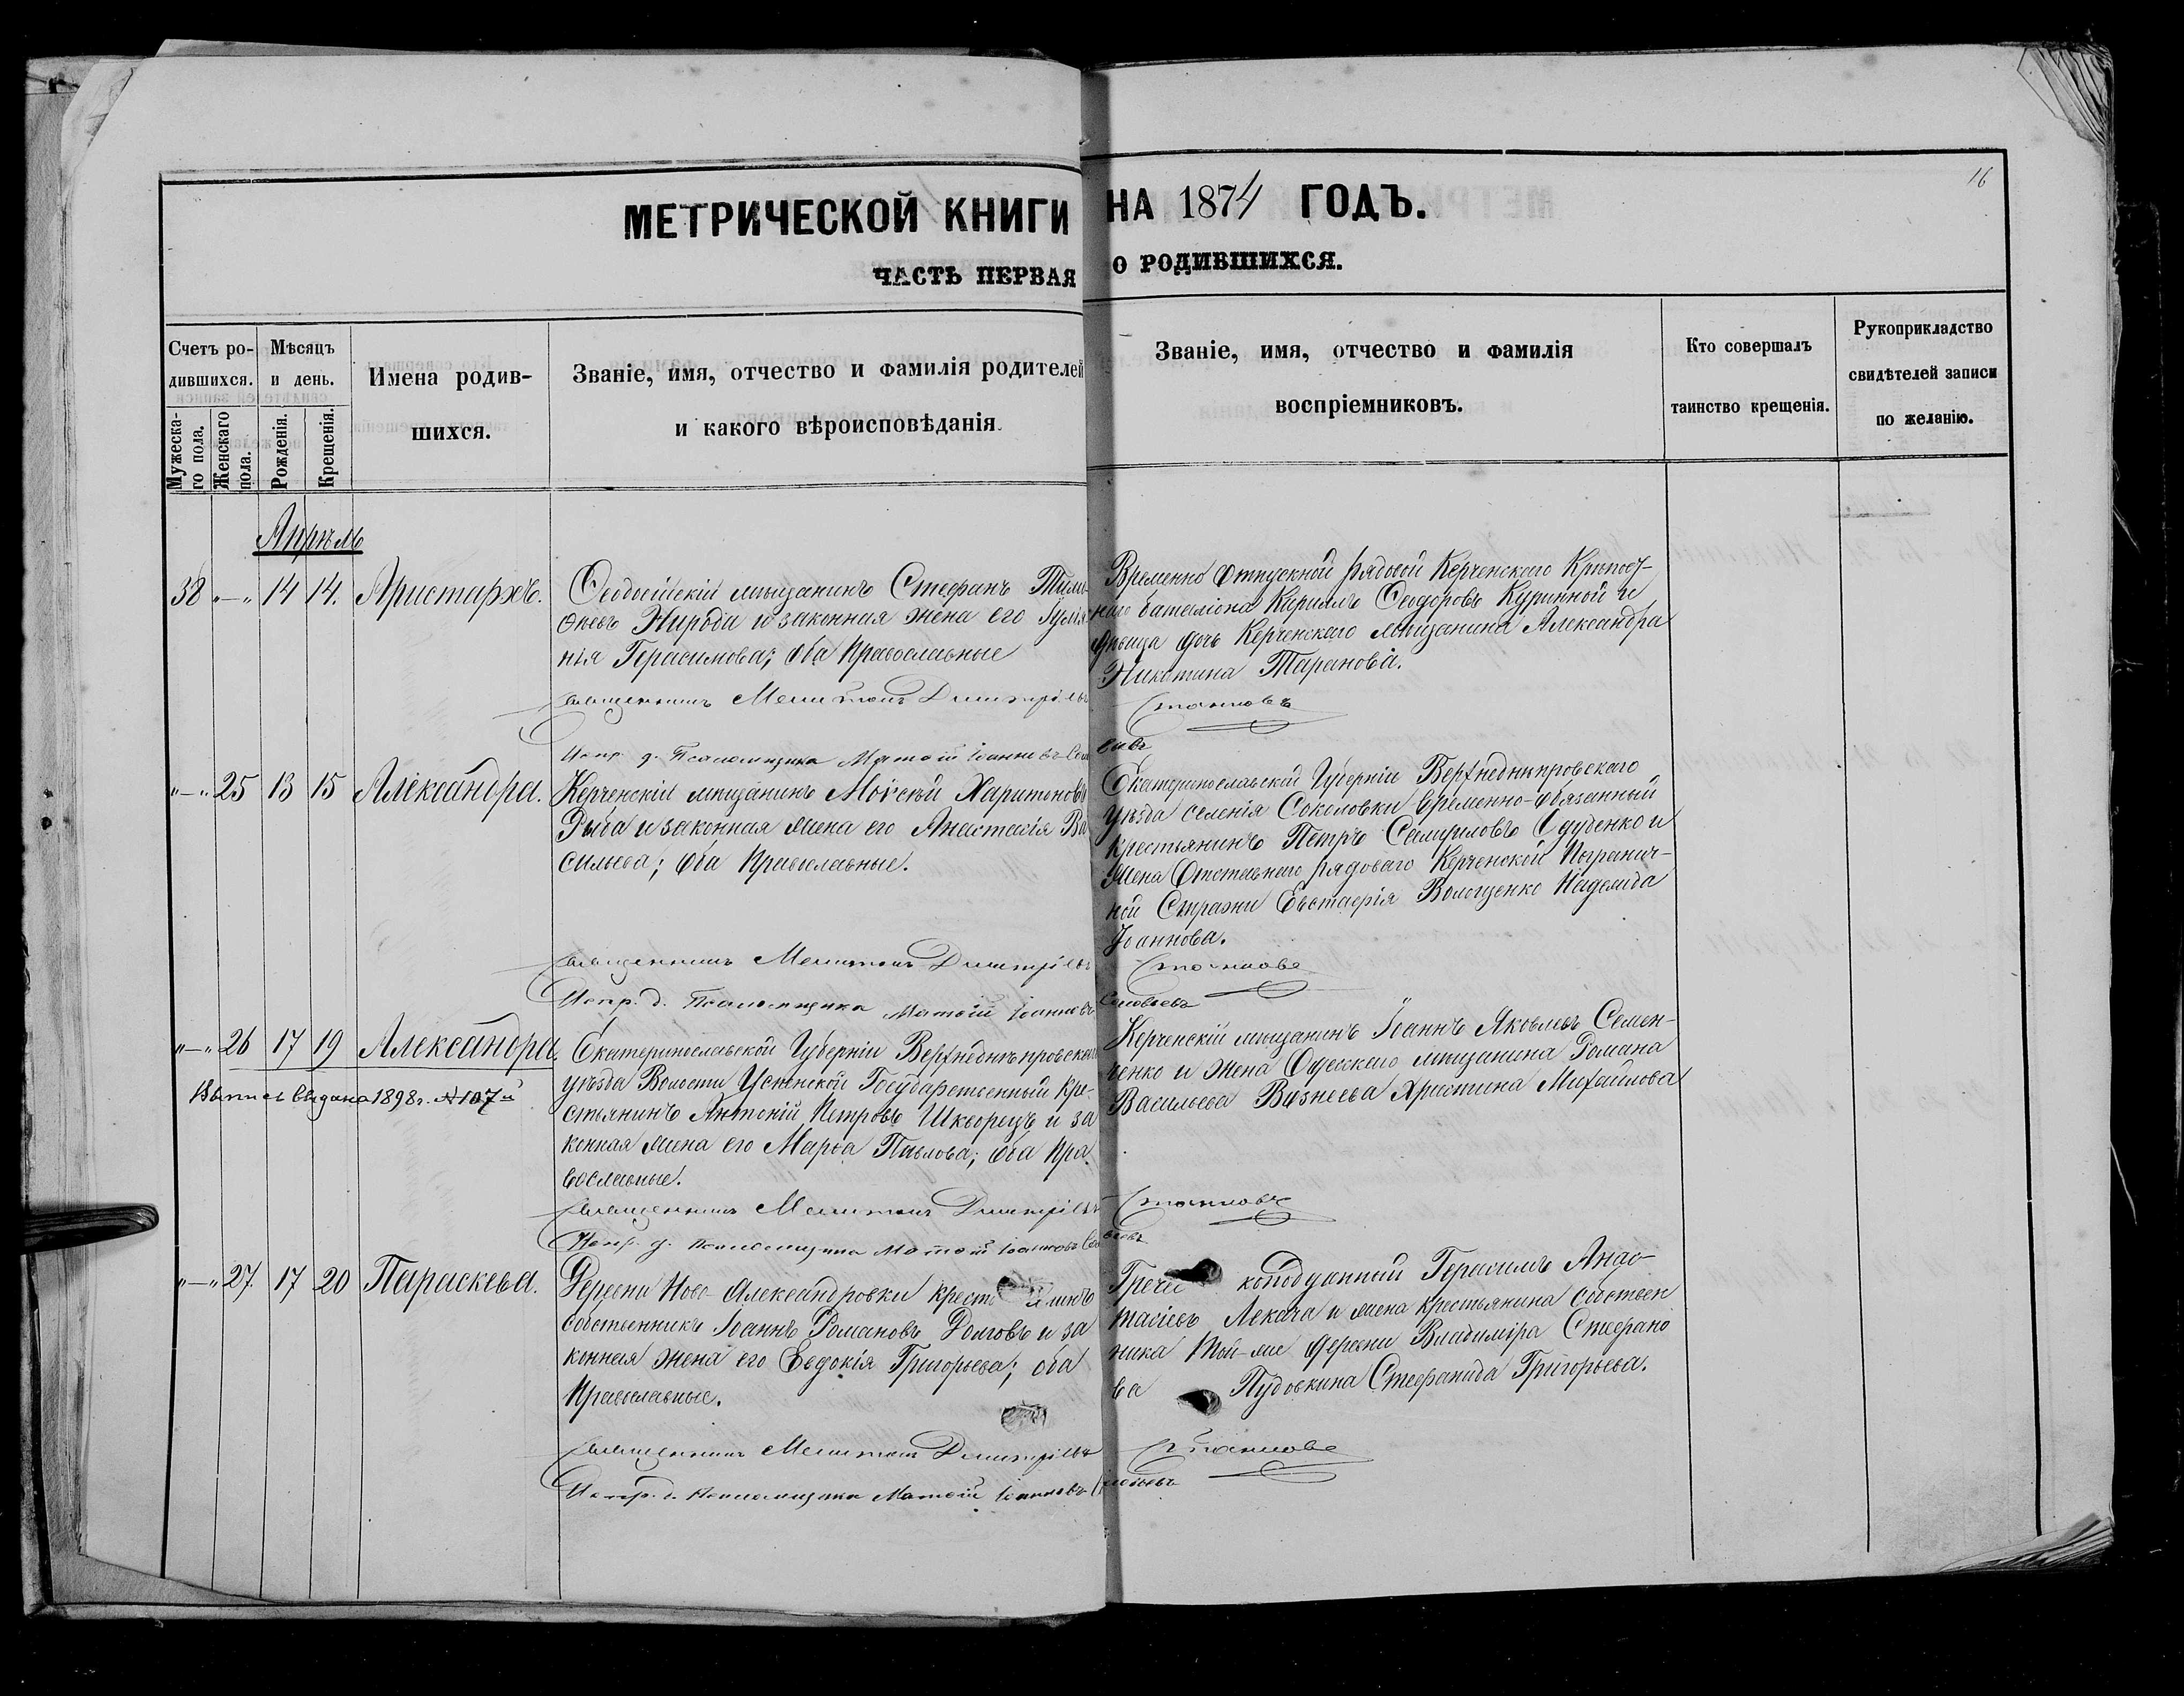 16
МЕТРИЧЕСКОЙ КНИГИ НА 1874 ГОДЪ.
ЧАСТЬ ПЕРВАЯ О РОДИВШИХСЯ.
Счетъ ро-
дившихся.
Мужеска-
го пола.
Женскаго
пола.
Мѣсяцъ
и день.
Рожденія.
Крещенія.
Имена родив-
шихся.
Званіе, имя, отчество и фамилія родителей
и какого вѣроисповѣданія.
Званіе, имя, отчество и фамилія
воспріемниковъ.
Кто совершалъ
таинство крещенія.
Рукоприкладство
свидѣтелей записи
по желанію.
Апрѣль
38 „—„ 14 14. Аристархъ.
Ѳеодосійскій мѣщанинъ Стефанъ
и законная жена его
нія Герасимова; оба Православные
Временно Отпускной рядовой Керченскаго Крѣпост-
наго баталіона Кириллъ Ѳеодоровъ Куринной и
дѣвица дочь Керченскаго мѣщанина Александра
Никитина Таранова.
Священникъ Мелитонъ Димитріевъ Станковъ
Испр. д. Псаломщика Матѳій Іоанновъ Соловьевъ
„—„ 25 13 15 Александра.
Керченскій мѣщанинъ Моісей Харитоновъ
Рыба и законная жена его Анастасія Ва
сильева; оба Православные.
Екатеринославской Губерніи Верхнеднѣпровскаго
уѣзда селенія Соколовки временно-обязанный
крестьянинъ Петръ Сдуденко и
жена Отставнаго рядоваго Керченской Погранич-
ной Стражи Евстафія Волощенко Надежда
Іоаннова.
Священникъ Мелитонъ Димитріевъ Станковъ
Испр. д. Псаломщика Матѳій Іоанновъ Соловьевъ
„—„ 26 17 19 Александра.
Выпись выдана 1898 г. № 107й
Екатеринославской Губерніи Верхнеднѣпровскаго
уѣзда Волости Успенской Государственный кре-
стьянинъ Антоній Петровъ Шкворецъ и за
конная жена его Марѳа Павлова; оба Пра
вославные.
Керченскій мѣщанинъ Іоаннъ Яковлевъ Семен-
ченко и жена Одесскаго мѣщанина Романа
Васильева Христина Михайлова
Священникъ Мелитонъ Димитріевъ Станковъ
Испр. д. Псаломщика Матѳій Іоанновъ Соловьевъ
„—„ 27. 17 20 Параскева.
Деревни Ново-Александровки крестьянинъ
собственникъ Іоаннъ Романовъ Долговъ и за
конная жена его Евдокія Григорьева; оба
Православные.
Гречес коподданный Герасимъ Анас-
тасіевъ Лекача и жена крестьянина собствен
ника той-же деревни Владиміра Стефано
ва Пудовкина Стефанида Григорьева.
Священникъ Мелитонъ Димитріевъ Станковъ
Испр. д. Псаломщика Матѳій Іоанновъ Соловьевъ